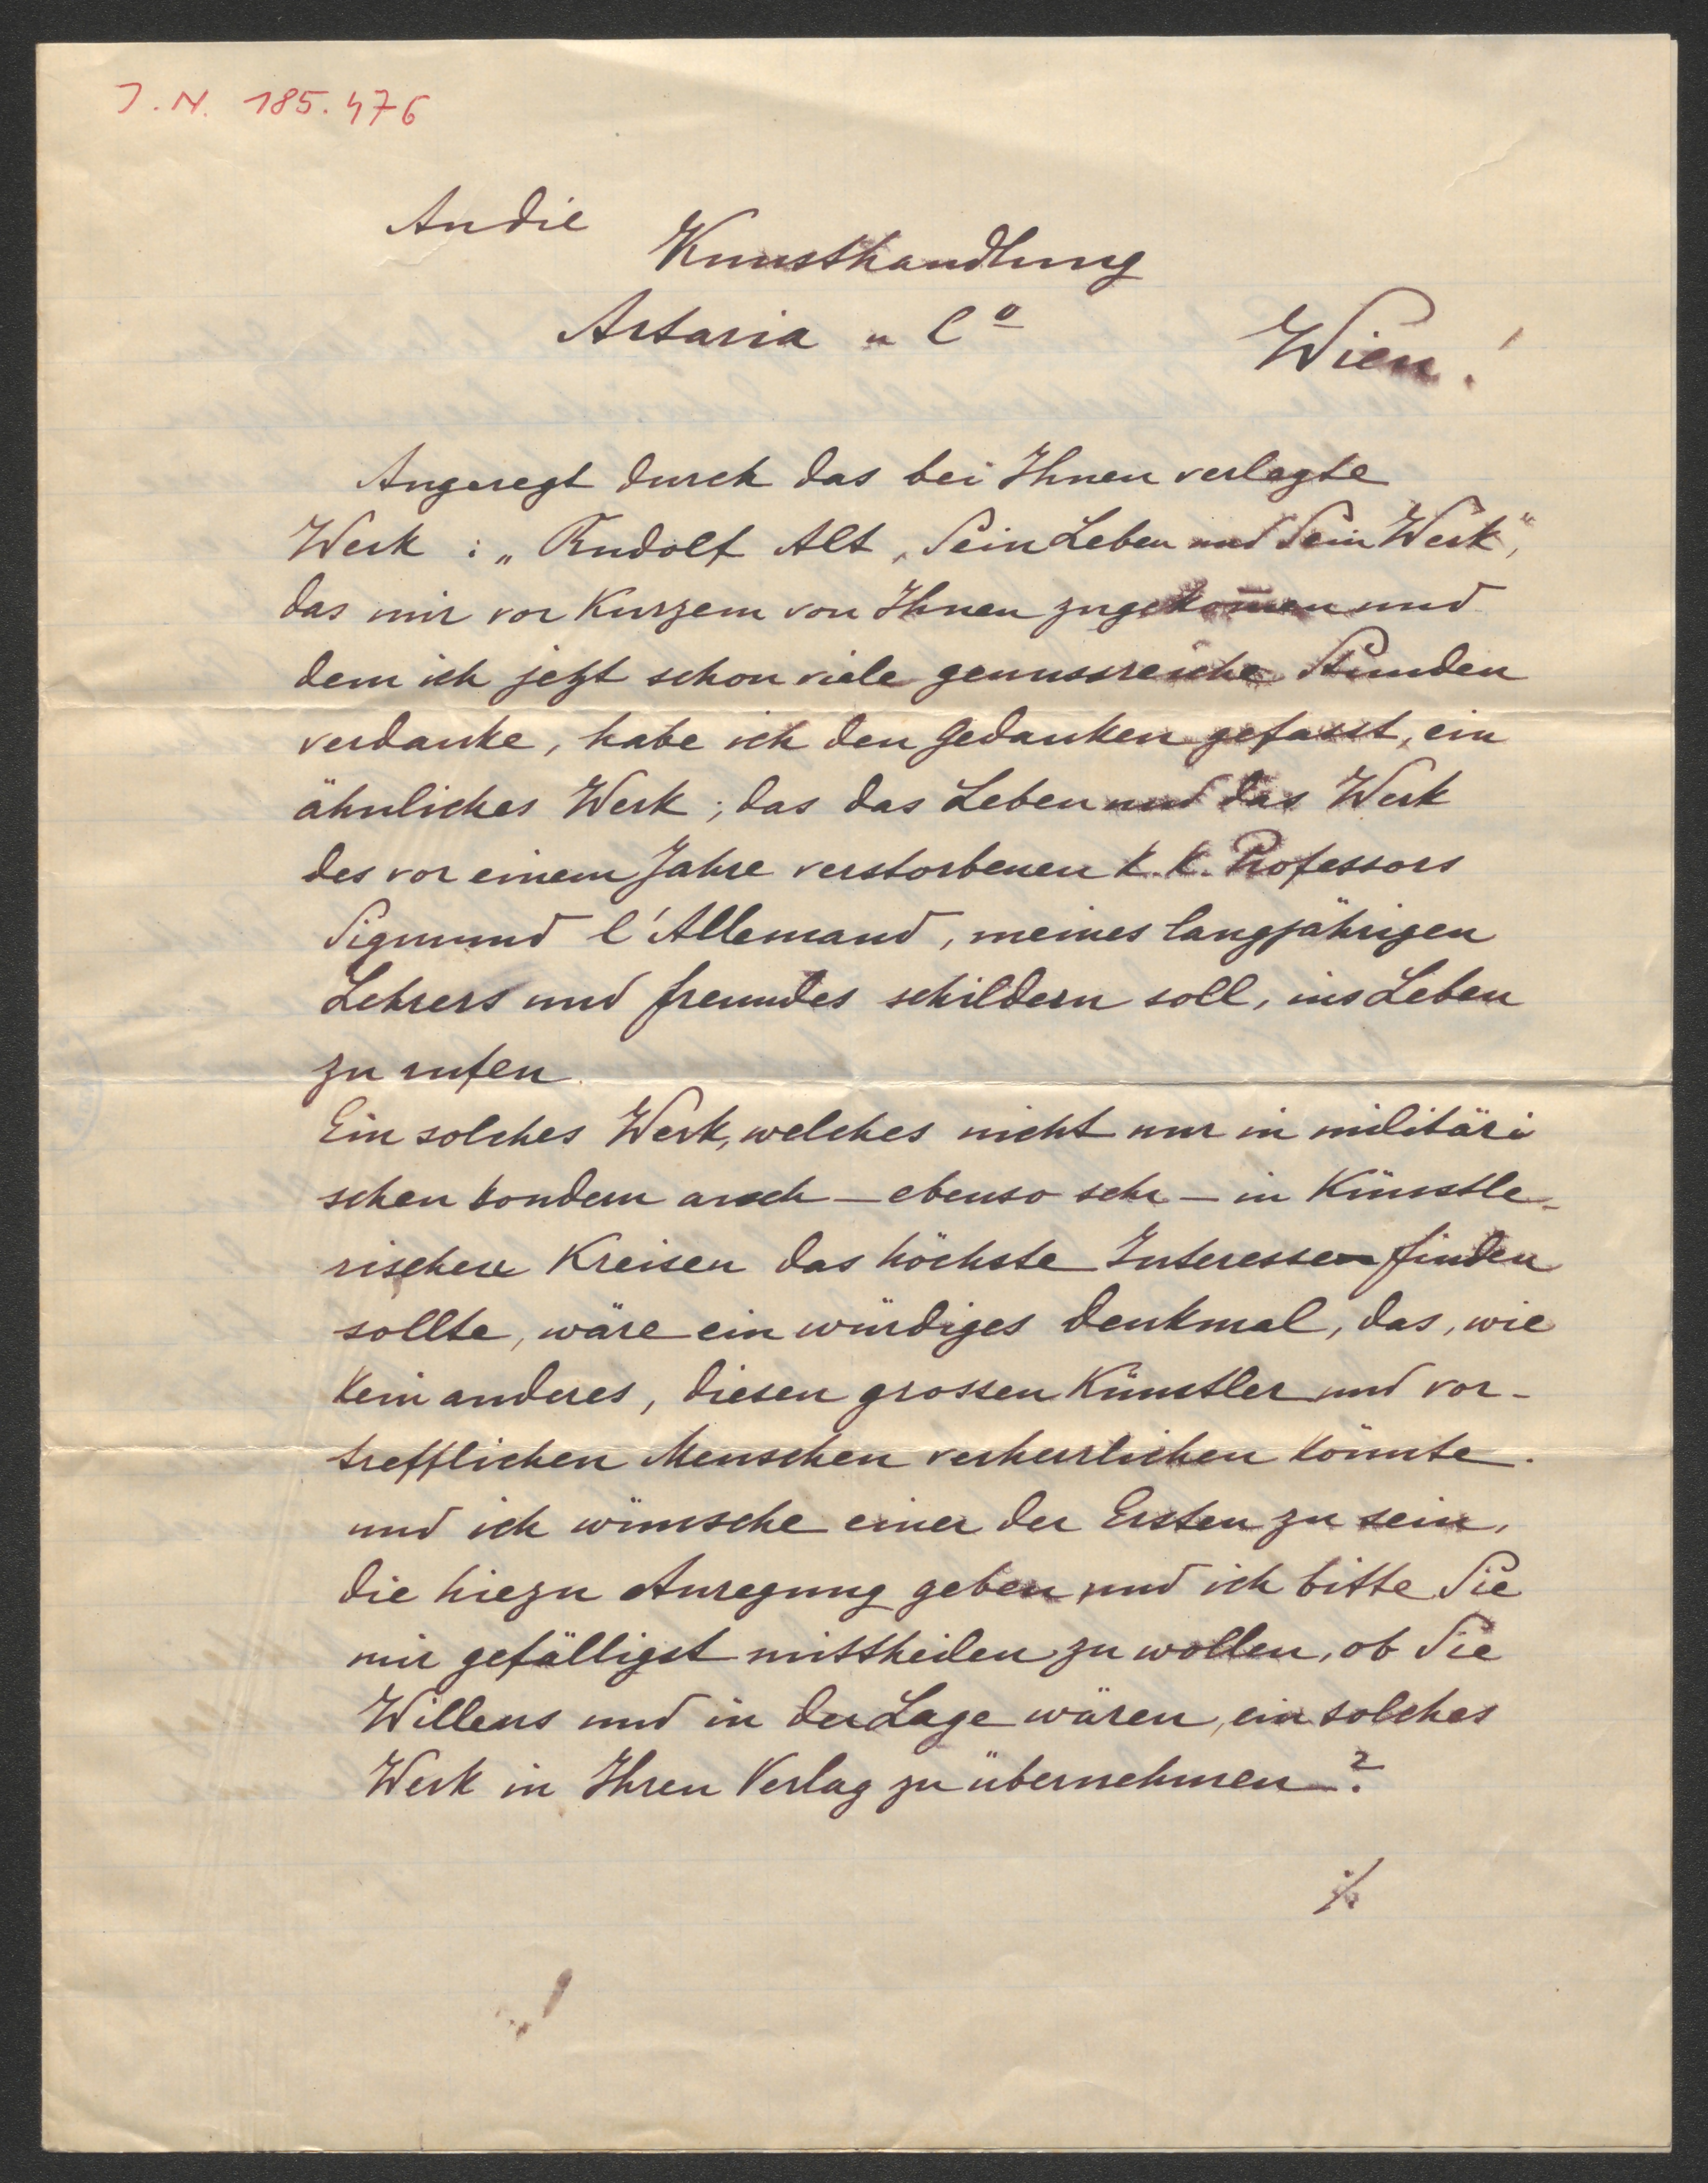 J.N. 185.476
An die
Kunsthandlung
Artaria u Co
Wien!
Angeregt durch das bei Ihnen verlegte
Werk : „Rudolf Alt, Sein Leben und Sein Werk",
das mir vor Kurzem von Ihnen zugekom̅en und
dem ich jetzt schon viele genussreiche Stunden
verdanke, habe ich den Gedanken gefasst, ein
ähnliches Werk, das das Leben und das Werk
des vor einem Jahre verstorbenen k. k. Professors
Sigmund l'Allemand, meines langjährigen
Lehrers und Freundes schildern soll, ins Leben
zu rufen.
Ein solches Werk, welches nicht nur in militäri
schen sondern auch – ebenso sehr – in künstle-
rischen Kreisen das höchste Interesse finden
sollte, wäre ein würdiges Denkmal, das, wie
kein anderes, diesen grossen Künstler und vor-
trefflichen Menschen verherrlichen könnte.
und ich wünsche einer der Ersten zu sein,
die hiezu Anregung geben und ich bitte Sie
mir gefälligst mittheilen zu wollen, ob Sie
Willens und in der Lage wären, ein solches
Werk in Ihren Verlag zu übernehmen?
./.